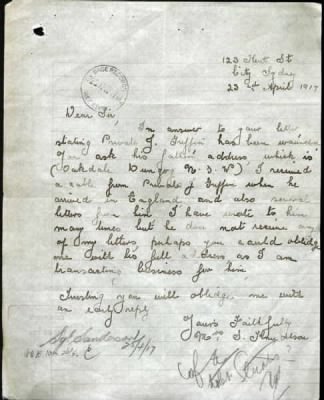 123 Kent St
City Sydney
23rd April 1917
Dear Sir,
In answer to your letter
stating Private J. Griffin has been wounded
you ask his father's address which is
(Oakdale Dungog N.S.W) I received
a cable from Private J Griffin when he
arrived in England and also several
letters from him I have wrote to him
many times but he does not receive any
of my letters perhaps you could oblidge
me with his full address as I am
transacting business for him.
Trusting you will oblidge me with
an early reply
Yours Faithfully
Mrs S.